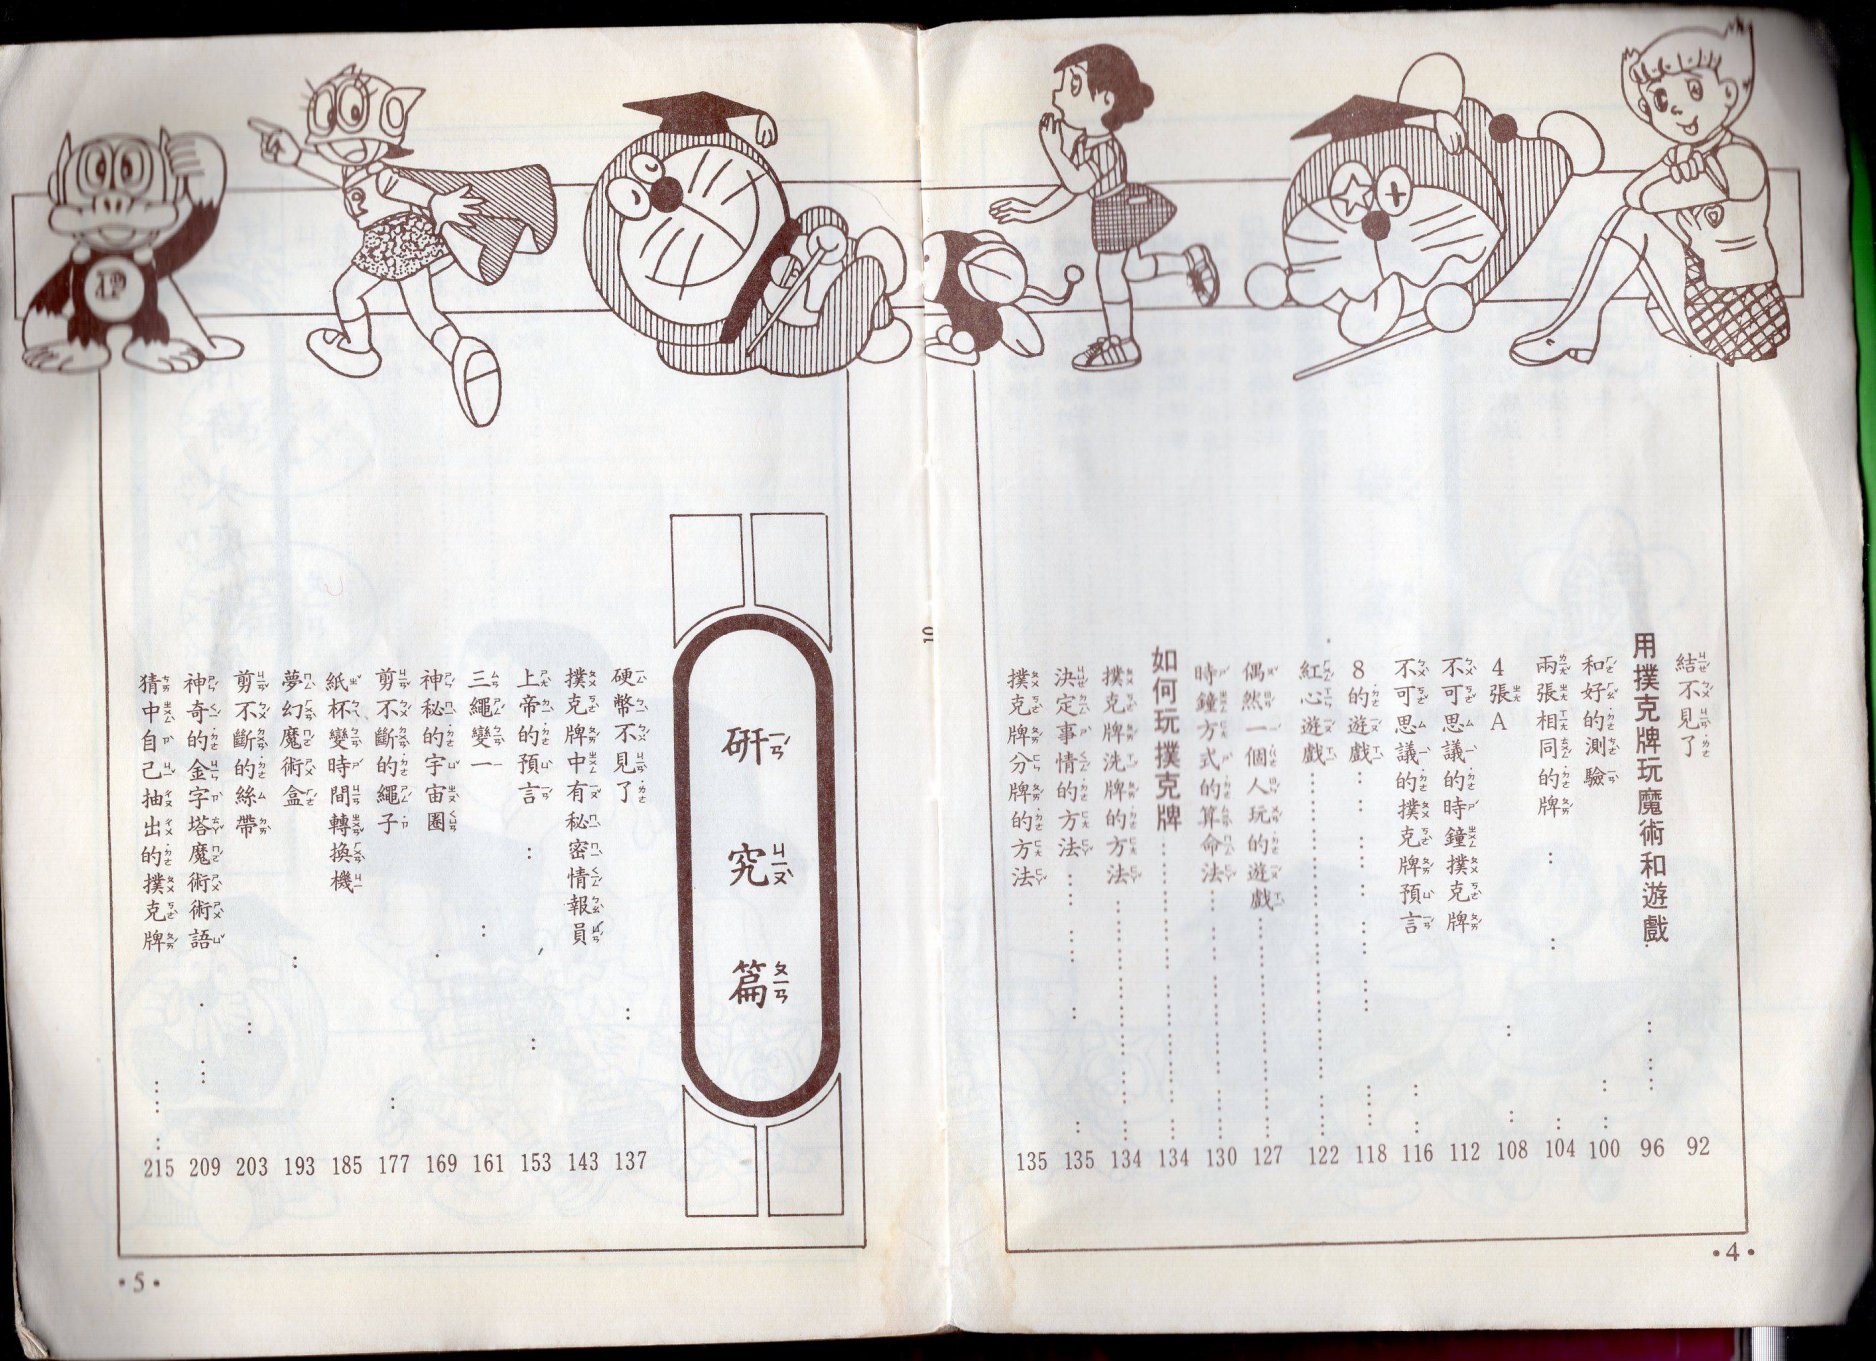 結不見了 92
用撲克牌玩魔術和遊戲 96
和好的測驗 100
兩張相同的牌 104
4張A 108
不可思議的時鐘撲克牌 112
不可思議的撲克牌預言 116
8的遊戲 118
紅心遊戲 122
偶然一個人玩的遊戲 127
時鐘方式的算命法 130
如何玩撲克牌 134
撲克牌洗牌的方法 134
決定事情的方法 135
撲克牌分牌的方法 135
·4·
研究篇
硬幣不見了 137
撲克牌中有秘密情報員 143
上帝的預言 153
三繩變一 161
神秘的宇宙圈 169
剪不斷的繩子 177
紙杯變時間轉換機 185
夢幻魔術盒 193
剪不斷的絲帶 203
神奇的金字塔魔術術語 209
猜中自己抽出的撲克牌 215
·5·